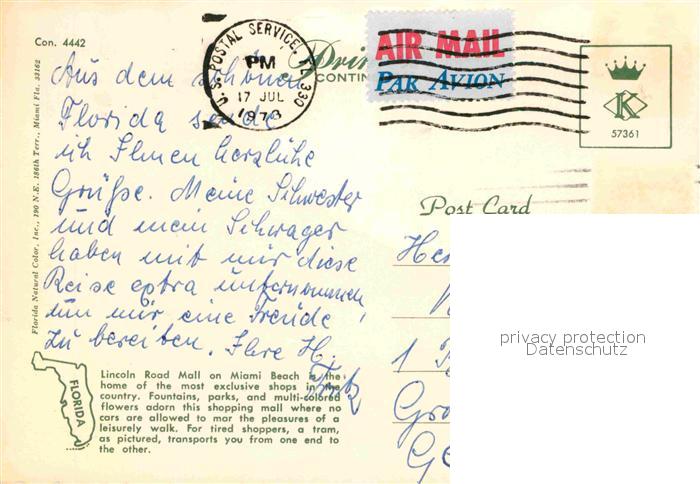 Con. 4442
U.S. POSTAL SERVICE, FL 330
PM
17 JUL
1973
AIR MAIL
PAR AVION
CONTIN
K
57361
Florida Natural Color, Inc., 190 N.E. 186th Terr., Miami Fla. 33162
Aus dem schönen
Florida sende
ich Ihnen herzliche
Grüße. Meine Schwester
und mein Schwager
haben mit mir diese
Reise extra unternommen,
um mir eine Freude
zu bereiten. Ihre H.
Post Card
privacy protection
Datenschutz
FLORIDA
Lincoln Road Mall on Miami Beach is the
home of the most exclusive shops in the
country. Fountains, parks, and multi-colored
flowers adorn this shopping mall where no
cars are allowed to mar the pleasures of a
leisurely walk. For tired shoppers, a tram,
as pictured, transports you from one end to
the other.